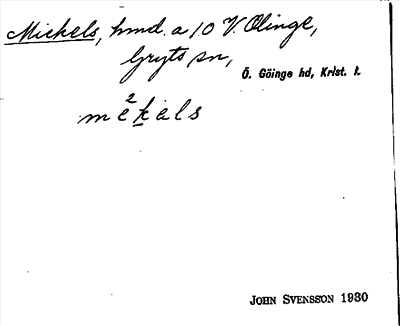 Mickels, hmd. a 10 V. Olinge,
Gryts sn,
Ö. Göinge hd, Krist. l.
me²kals
JOHN SVENSSON 1930